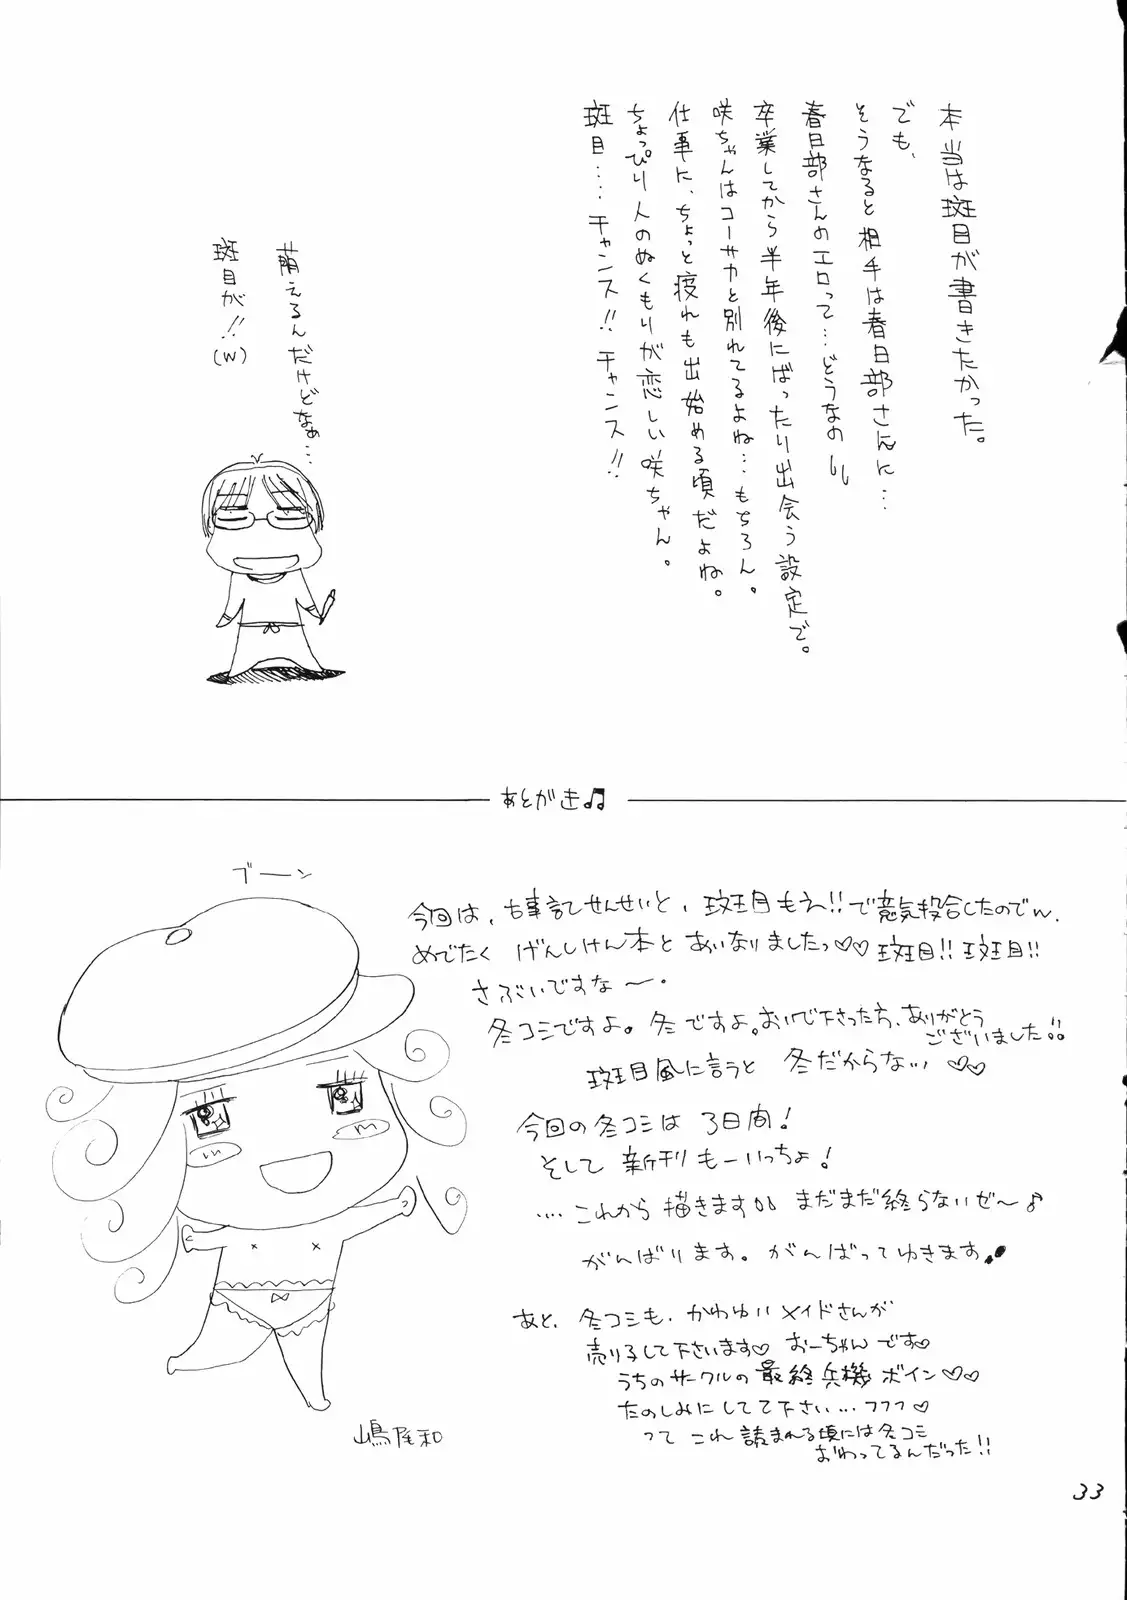 本当は斑目が書きたかった。
でも、
そうなると相手は春日部さんに…
春日部さんのエロって…どうなの
卒業してから半年後にばったり出会う設定で。
咲ちゃんはコーサカと別れてるよね…もちろん。
仕事に、ちょっと疲れも出始める頃だよね。
ちょっぴり人のぬくもりが恋しい咲ちゃん。
斑目…チャンス!!チャンス!!
萌えるんだけどなぁ…
斑目が!!(w)
あとがき♫
ブーン
今回は、古事記せんせいと、斑目もえ~!!で意気投合したのでw、
めでたく げんしけん本と あいなりましたっ♡♡ 斑目!!斑目!!
さぶいですな〜。
冬コミですよ。冬ですよ。おいで下さった方、ありがとう
ございました!!
斑目風に言うと 冬だからな… ♡♡
今回の冬コミは 3日間!
そして 新刊 もーいっちょ!
…これから 描きます まだまだ終らないぜ〜♪
がんばります。がんばってゆきます
あと、冬コミも、かわゆいメイドさんが
売り子して下さいます♡ おーちゃんです♡
うちのサークルの最終兵機 ボイン♡♡
たのしみにしてて下さい…フフフ♡
って これ 読まれる頃には冬コミ
おわってるんだった!!
嶋尾和
33